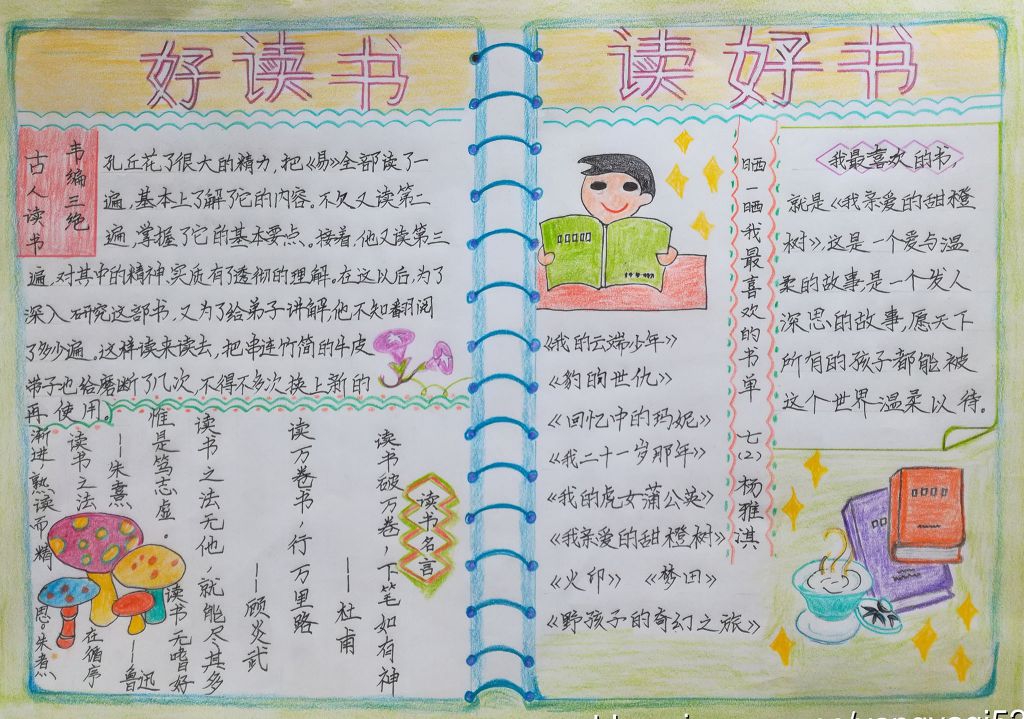 好读书
读好书
韦编三绝
古人读书
孔丘花了很大的精力,把《易》全部读了一
遍,基本上了解了它的内容。不久又读第二
遍,掌握了它的基本要点。接着,他又读第三
遍,对其中的精神、实质有了透彻的理解。在这以后,为了
深入研究这部书,又为了给弟子讲解,他不知翻阅
了多少遍。这样读来读去,把串连竹简的牛皮
带子也给磨断了几次,不得不多次换上新的
再使用。
读书名言
读书破万卷,下笔如有神
——杜甫
读万卷书,行万里路
——顾炎武
读书之法无他,就能尽其多
惟是笃志虚。
读书无嗜好
——鲁迅
——朱熹
读书之法
在循序
渐进,熟读而精
思。朱熹
《我的云端少年》
《豹的世仇》
《回忆中的玛妮》
《我二十一岁那年》
《我的虎女蒲公英》
《我亲爱的甜橙树》
《火印》 《梦田》
《野孩子的奇幻之旅》
晒一晒我最喜欢的书单
七(2) 杨雅淇
我最喜欢的书,
就是《我亲爱的甜橙
树》,这是一个爱与温
柔的故事,是一个发人
深思的故事,愿天下
所有的孩子都能被
这个世界温柔以待。